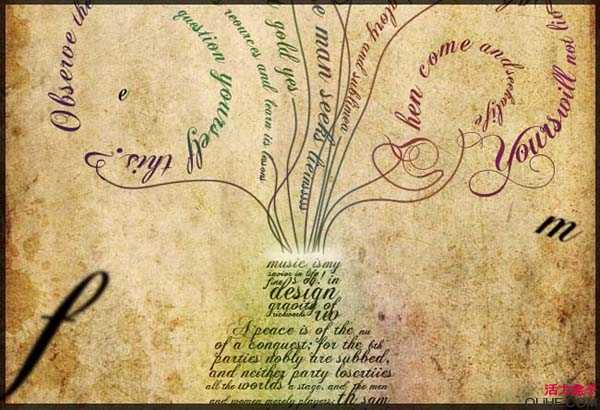 Observe the
this.?
question yourself
resources and learn its
gold yes
man seeks
glory and sublimea
hen come and seekalife
Yourswill not
e
m
f
music ismy
savior in life!
design
gravity of
A peace is of the nu
of a conquest; for the 6th
parties dobly are subbed,
and neither party losertiies
all the worlds a stage, and the men
and women merely players: th sam
活力盒子
OLIHE.COM